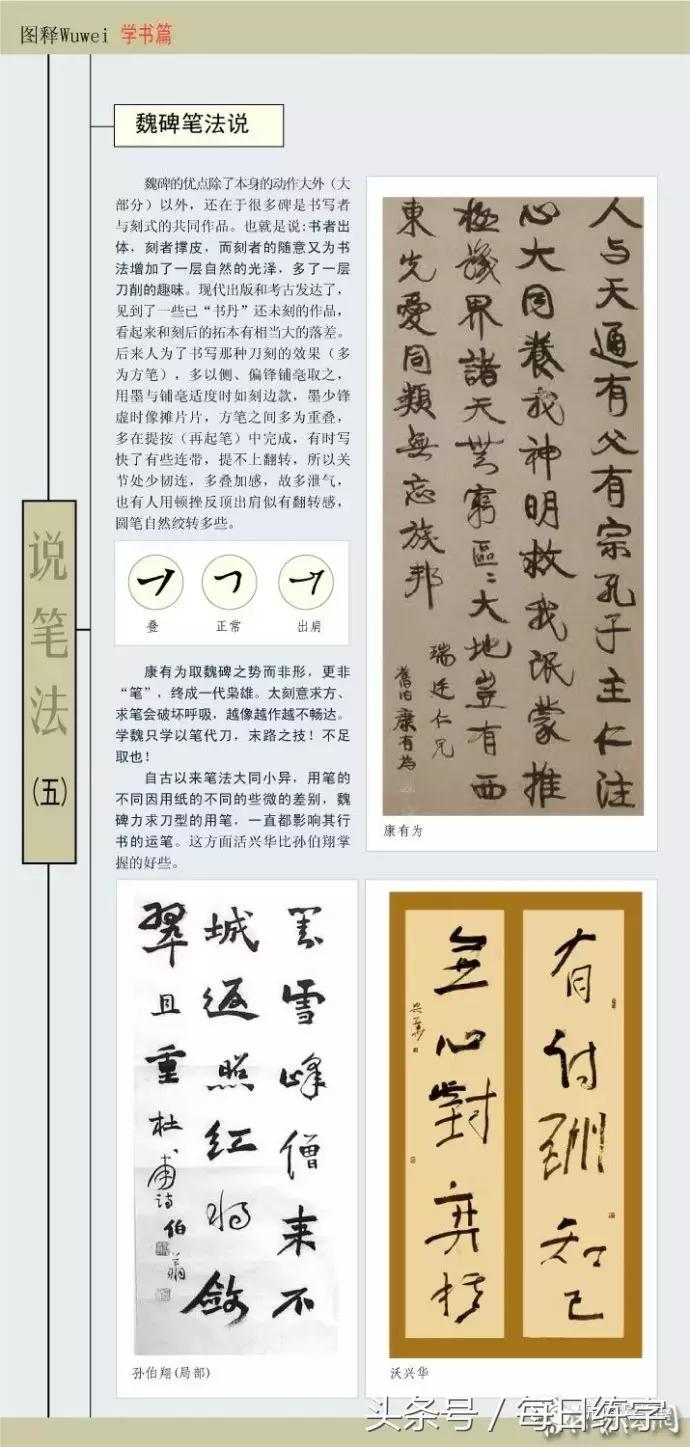 图释Wuwei 学书篇
魏碑笔法说
魏碑的优点除了本身的动作大外（大
部分）以外，还在于很多碑是书写者
与刻式的共同作品。也就是说:书者出
体，刻者撑皮，而刻者的随意又为书
法增加了一层自然的光泽，多了一层
刀削的趣味。现代出版和考古发达了，
见到了一些已“书丹”还未刻的作品，
看起来和刻后的拓本有相当大的落差。
后来人为了书写那种刀刻的效果（多
为方笔），多以侧、偏锋铺毫取之，
用墨与铺毫适度时如刻边款，墨少锋
虚时像摊片片，方笔之间多为重叠，
多在提按（再起笔）中完成，有时写
快了有些连带，提不上翻转，所以关
节处少韧连，多叠加感，故多泄气，
也有人用顿挫反顶出肩似有翻转感，
圆笔自然绞转多些。
叠
正常
出肩
康有为取魏碑之势而非形，更非
“笔”，终成一代枭雄。太刻意求方、
求笔会破坏呼吸，越像越作越不畅达。
学魏只学以笔代刀，末路之技！不足
取也！
自古以来笔法大同小异，用笔的
不同因用纸的不同的些微的差别，魏
碑力求刀型的用笔，一直都影响其行
书的运笔。这方面活兴华比孙伯翔掌
握的好些。
说笔法
(五)
人与天通有父有宗孔子主仁注
心大同養我神明救我氓蒙推
極界諸天無窮區二大地豈有西
東先愛同類無忘族邦
瑞廷仁兄
康有為
康有为
雪峰僧来不
城返照红将敛
翠且重
杜甫诗
伯翔
孙伯翔(局部)
有酬知己
無心對弈棋
沃兴华
头条号／每日练字